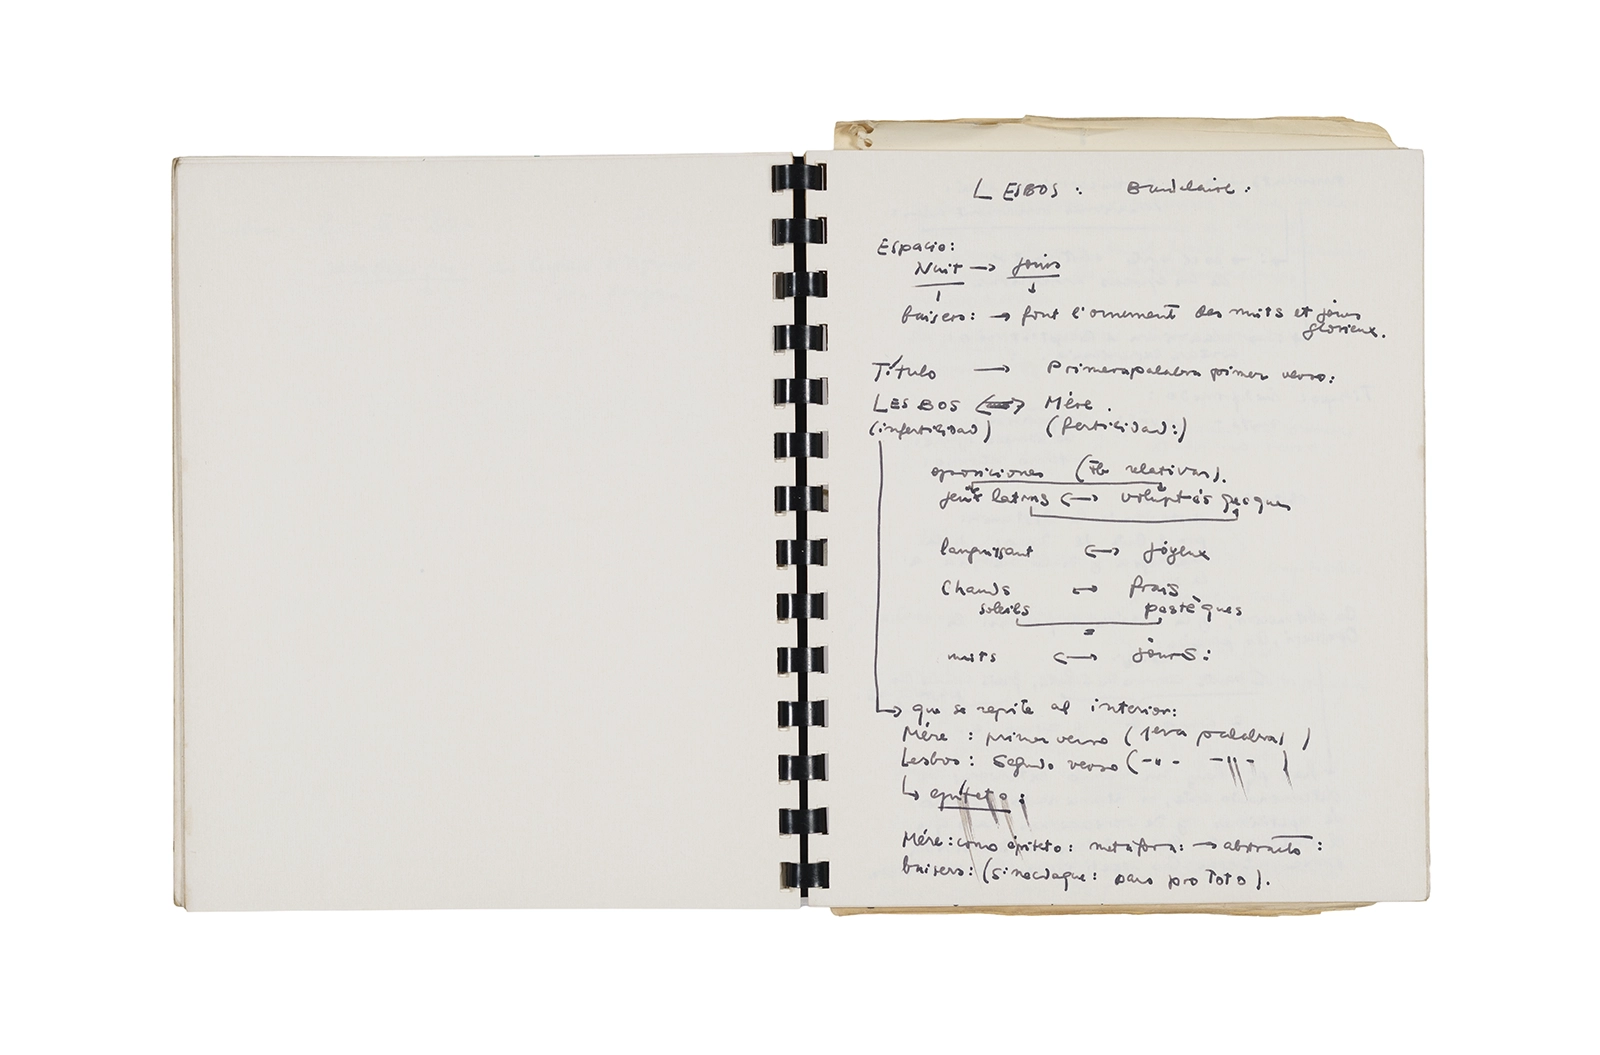 LESBOS: Baudelaire:
Espacio:
Nuit → jours
baisers: → font l'ornement des nuits et jours
glorieux.
Título → Primera palabra primer verso:
LESBOS ⟷ Mére.
(infertilidad) (fertilidad:)
oposiciones ( relativas).
jeux latins ⟷ voluptés grecques
languissant ⟷ joyeux
Chauds ⟷ frais
soleils pastèques
=
nuits ⟷ jours:
→ que se repite al interior:
Mére: primer verso (1era palabra)
Lesbos: Segundo verso (-"- -"-)
↳ epíteto:
Mére: como epíteto: metáfora: → abstracto:
baisers: (sinecdoque: pars pro toto).